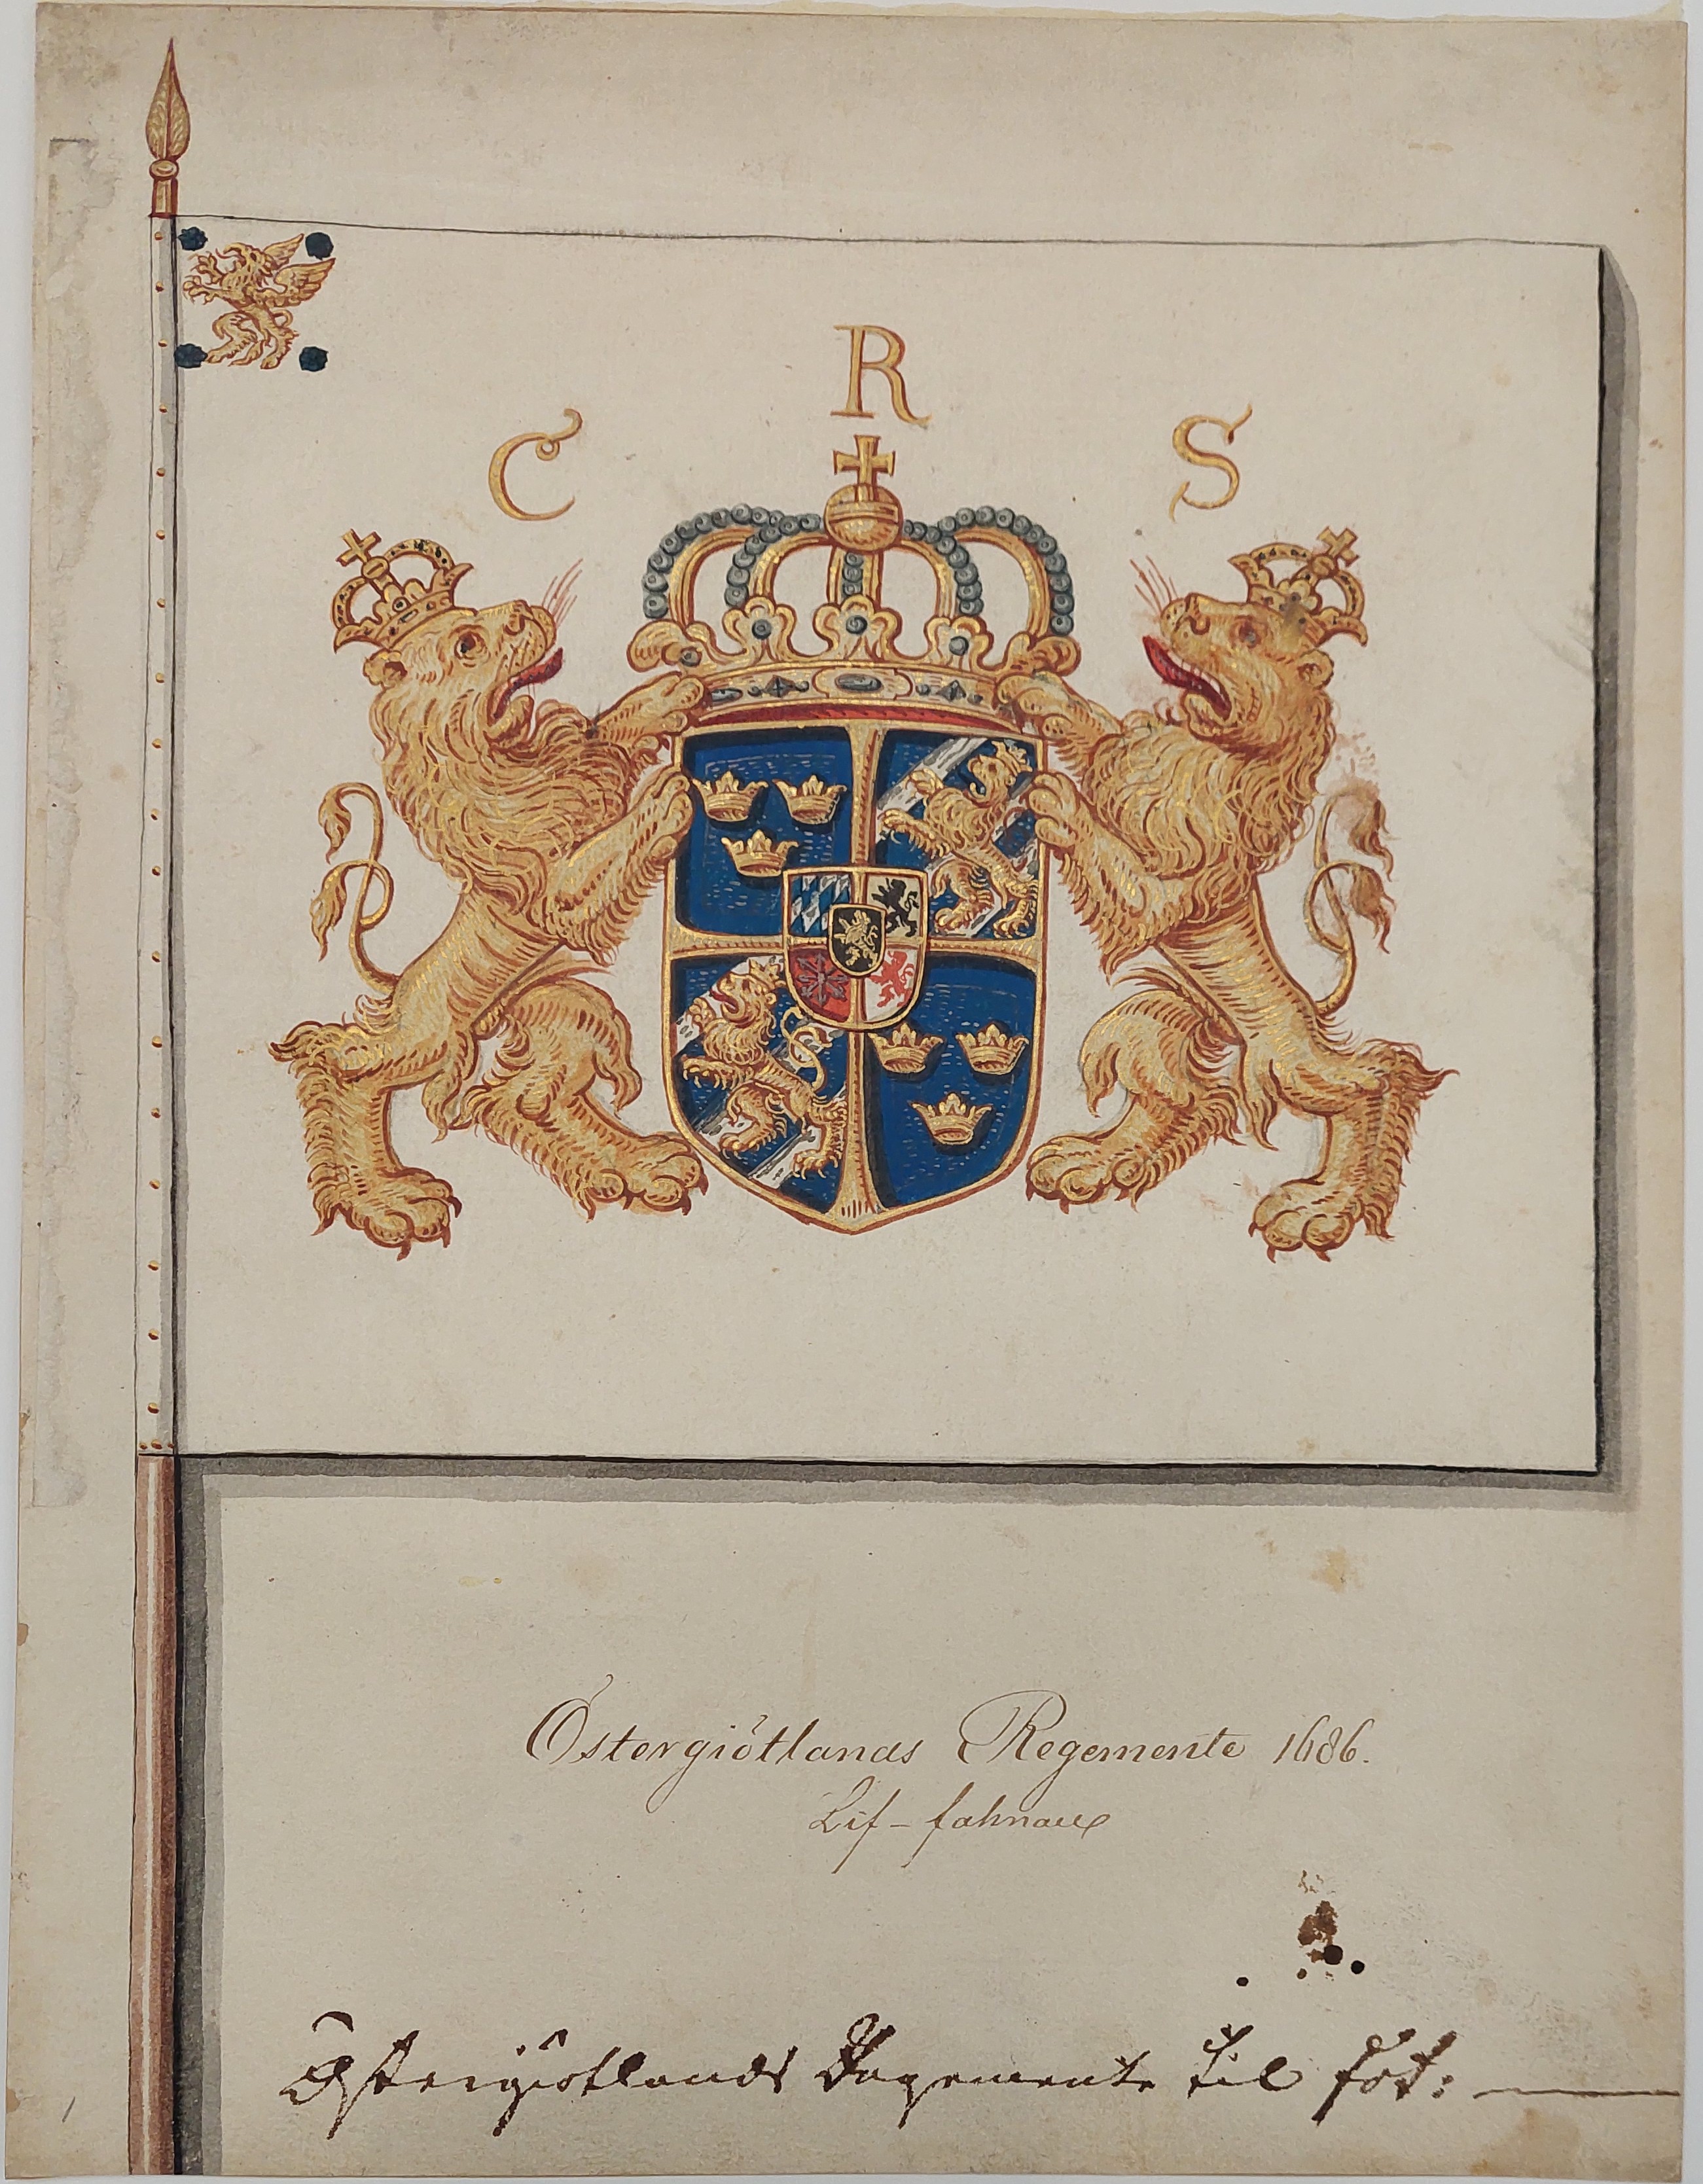 C R S
Östergiötlands Regemente 1686.
Lif-fahnan
Östergiötlands Regemente til fot: